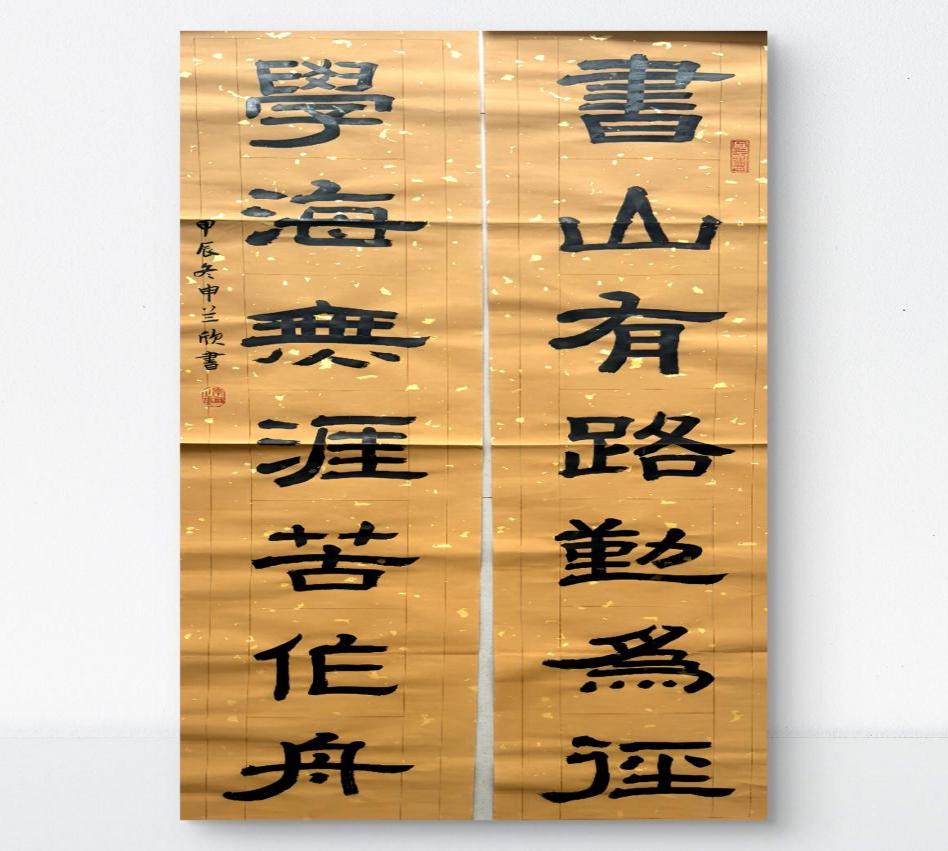 書山有路勤為徑
學海無涯苦作舟
甲辰冬申兰欣書